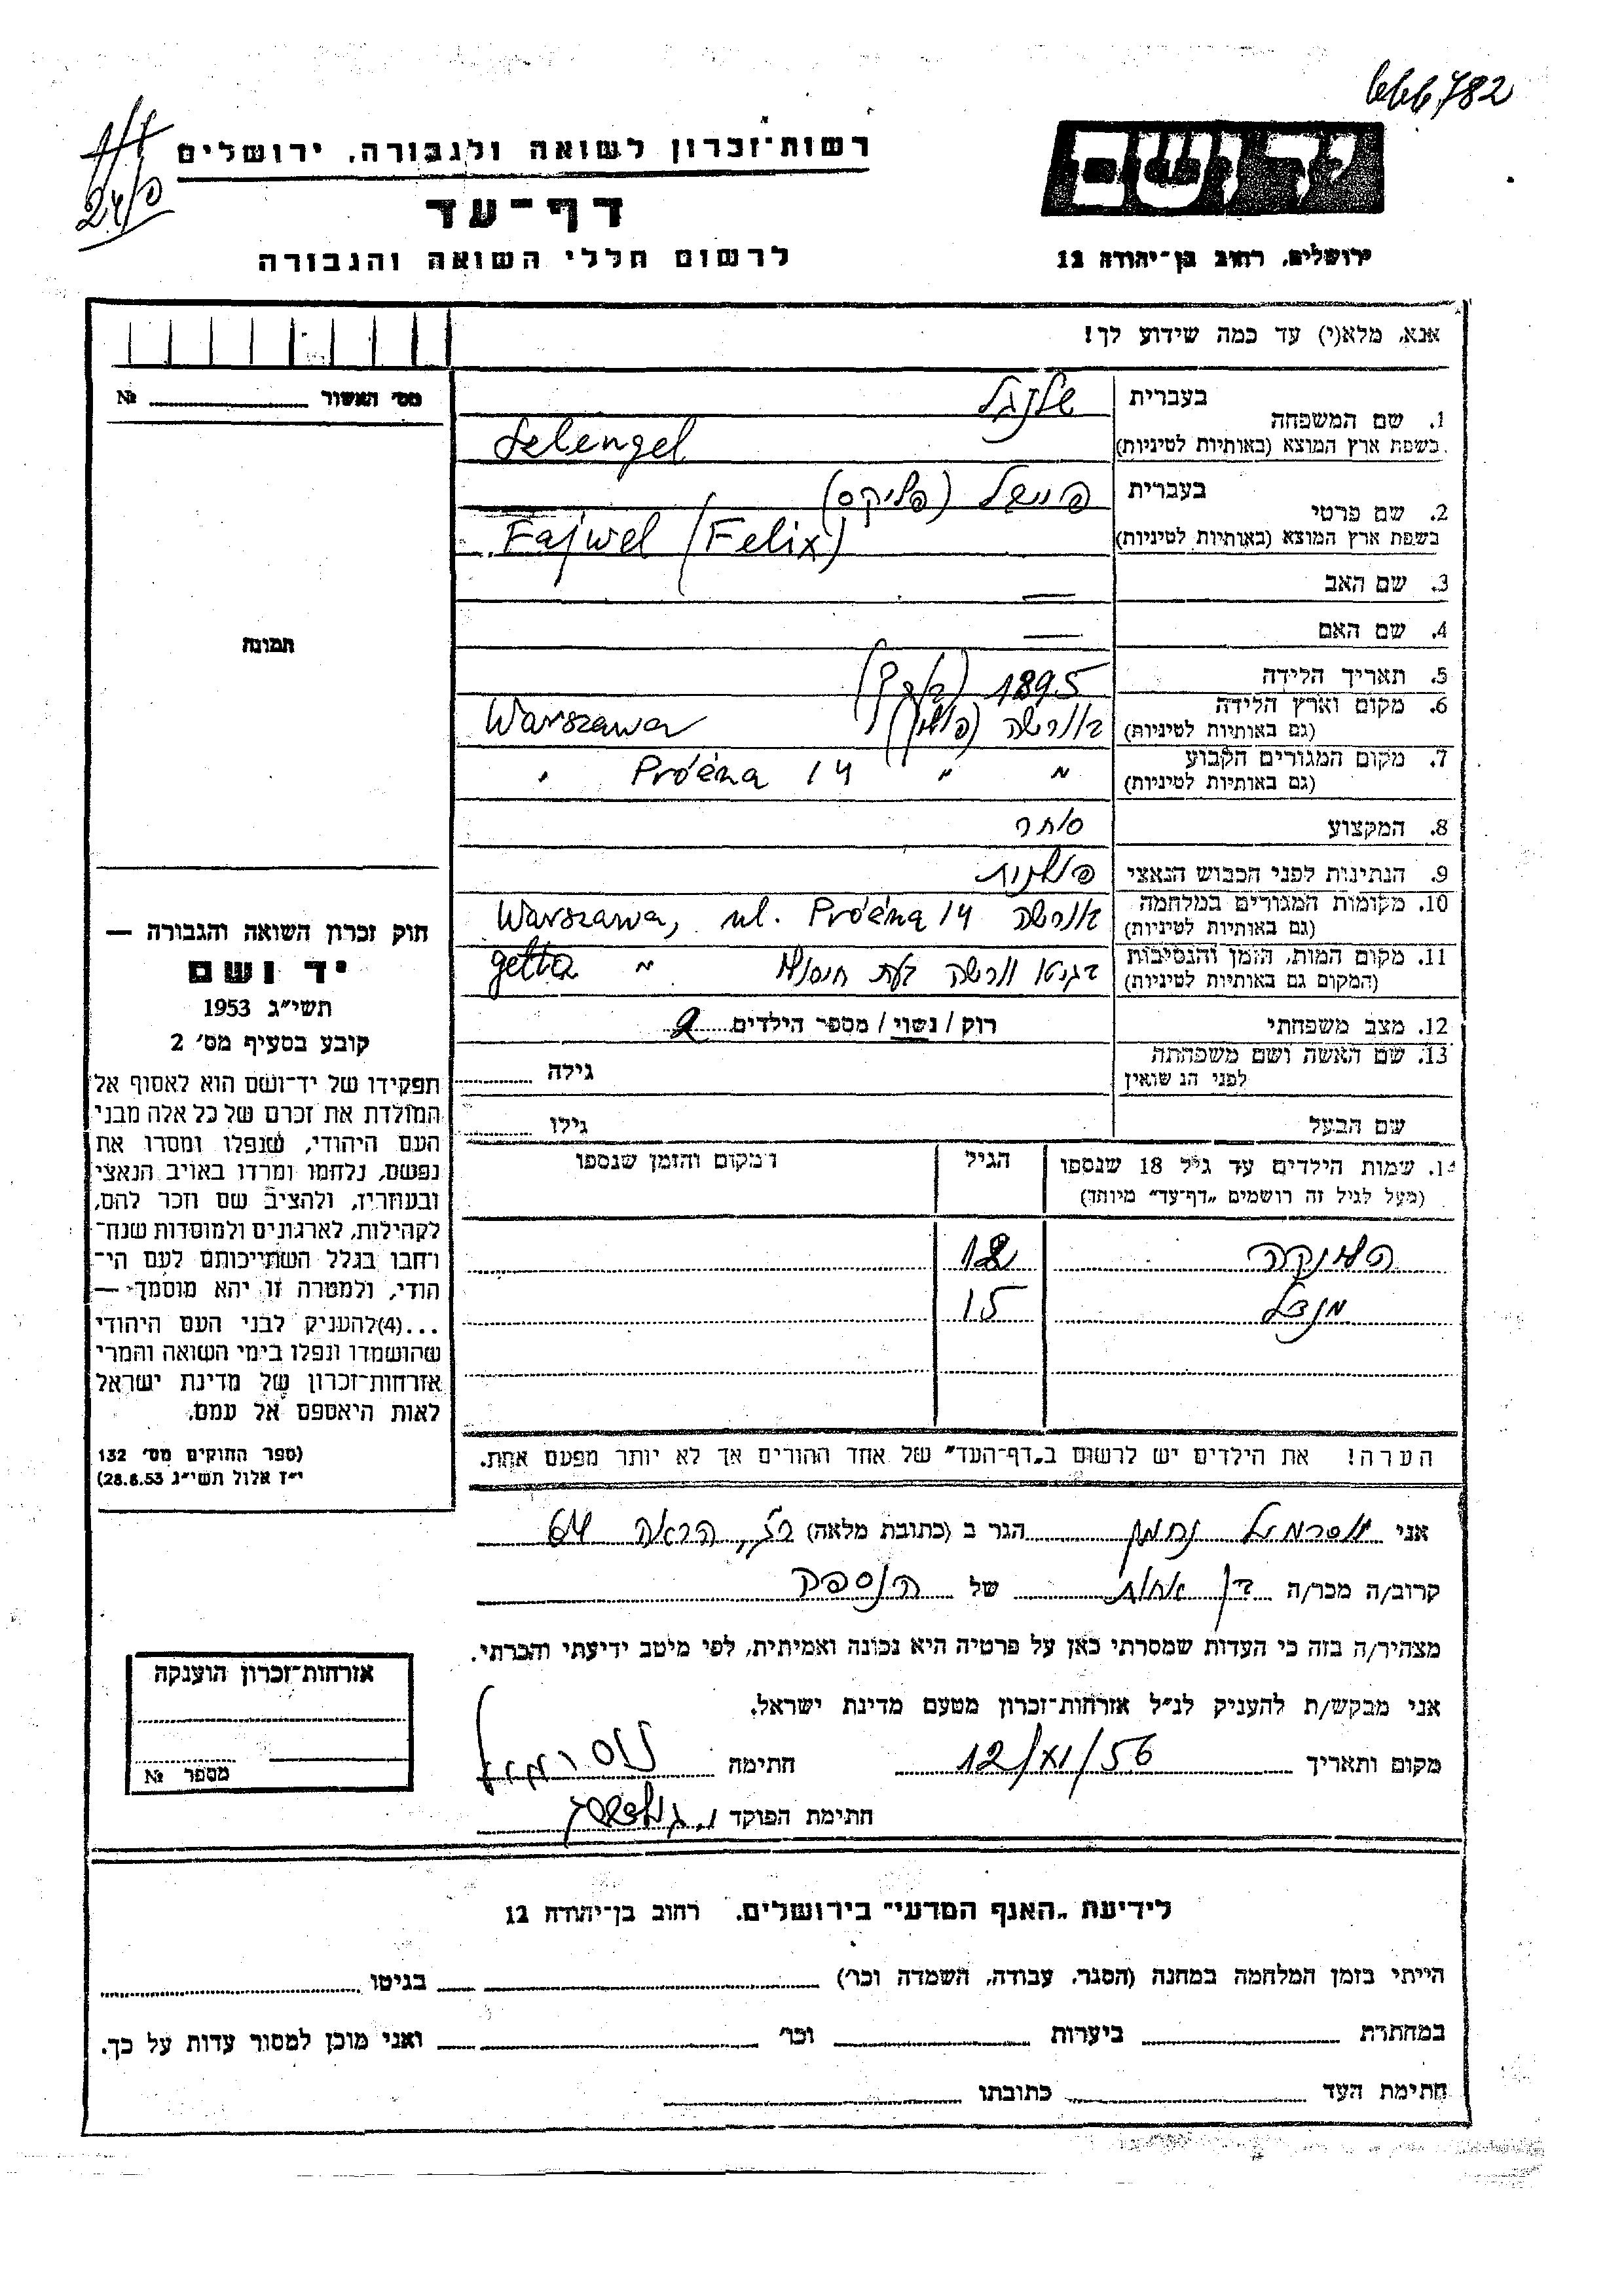 666782
רשות־זכרון לשואה ולגבורה, ירושלים
יד ושם
דף־עד
לרשום חללי השואה והגבורה
ירושלים, רחוב בן־יהודה 12
אנא, מלא(י) עד כמה שידוע לך!
מס׳ האשור № 
תמונה
חוק זכרון השואה והגבורה —
יד ושם
תשי״ג 1953
קובע בסעיף מס׳ 2
תפקידו של יד־ושם הוא לאסוף אל
המולדת את זכרם של כל אלה מבני
העם היהודי, שנפלו ומסרו את
נפשם, נלחמו ומרדו באויב הנאצי
ובעוזריו, ולהציב שם וזכר להם,
לקהילות, לארגונים ולמוסדות שנח־
רבו בגלל השתייכותם לעם הי־
הודי, ולמטרה זו יהא מוסמך —
...(4)להעניק לבני העם היהודי
שהושמדו ונפלו בימי השואה והמרי
אזרחות־זכרון של מדינת ישראל
לאות היאספם אל עמם.
(ספר החוקים מס׳ 132
י״ז אלול תשי״ג 28.8.53)
1. שם המשפחה
בעברית שלנגל
בשפת ארץ המוצא (באותיות לטיניות) Selengel
2. שם פרטי
בעברית פייוול (פליקס)
בשפת ארץ המוצא (באותיות לטיניות) Fajwel (Felix)
3. שם האב —
4. שם האם —
5. תאריך הלידה 1895
6. מקום וארץ הלידה
(גם באותיות לטיניות) וורשה (פולין) Warszawa
7. מקום המגורים הקבוע
(גם באותיות לטיניות) " " Próżna 14
8. המקצוע סוחר
9. הנתינות לפני הכבוש הנאצי פולנית
10. מקומות המגורים במלחמה
(גם באותיות לטיניות) וורשה Warszawa, ul. Próżna 14
11. מקום המות, הזמן והנסיבות
(המקום גם באותיות לטיניות) בגיטו וורשה בעת חיסולו " getto
12. מצב משפחתי רוק / נשוי / מספר הילדים 2
13. שם האשה ושם משפחתה
לפני הנשואין גילה
שם הבעל גילו
14. שמות הילדים עד גיל 18 שנספו
(מעל לגיל זה רושמים „דף־עד״ מיוחד)
הגיל
המקום והזמן שנספו
הלינקה 12
מנדל 15
הערה! את הילדים יש לרשום ב„דף־העד״ של אחד ההורים אך לא יותר מפעם אחת.
אני נחמן הגר ב (כתובת מלאה) הרואה 64
קרוב/ה מכר/ה בן אחות של הנספה
מצהיר/ה בזה כי העדות שמסרתי כאן על פרטיה היא נכונה ואמיתית, לפי מיטב ידיעתי והכרתי.
אני מבקש/ת להעניק לנ״ל אזרחות־זכרון מטעם מדינת ישראל.
מקום ותאריך 12/XI/56 חתימה
חתימת הפוקד
אזרחות־זכרון הוענקה
מספר №
לידיעת „האגף המדעי״ בירושלים, רחוב בן־יהודה 12
הייתי בזמן המלחמה במחנה (הסגר, עבודה, השמדה וכר׳) בגיטו
במחתרת ביערות וכר׳ ואני מוכן למסור עדות על כך.
חתימת העד כתובתו